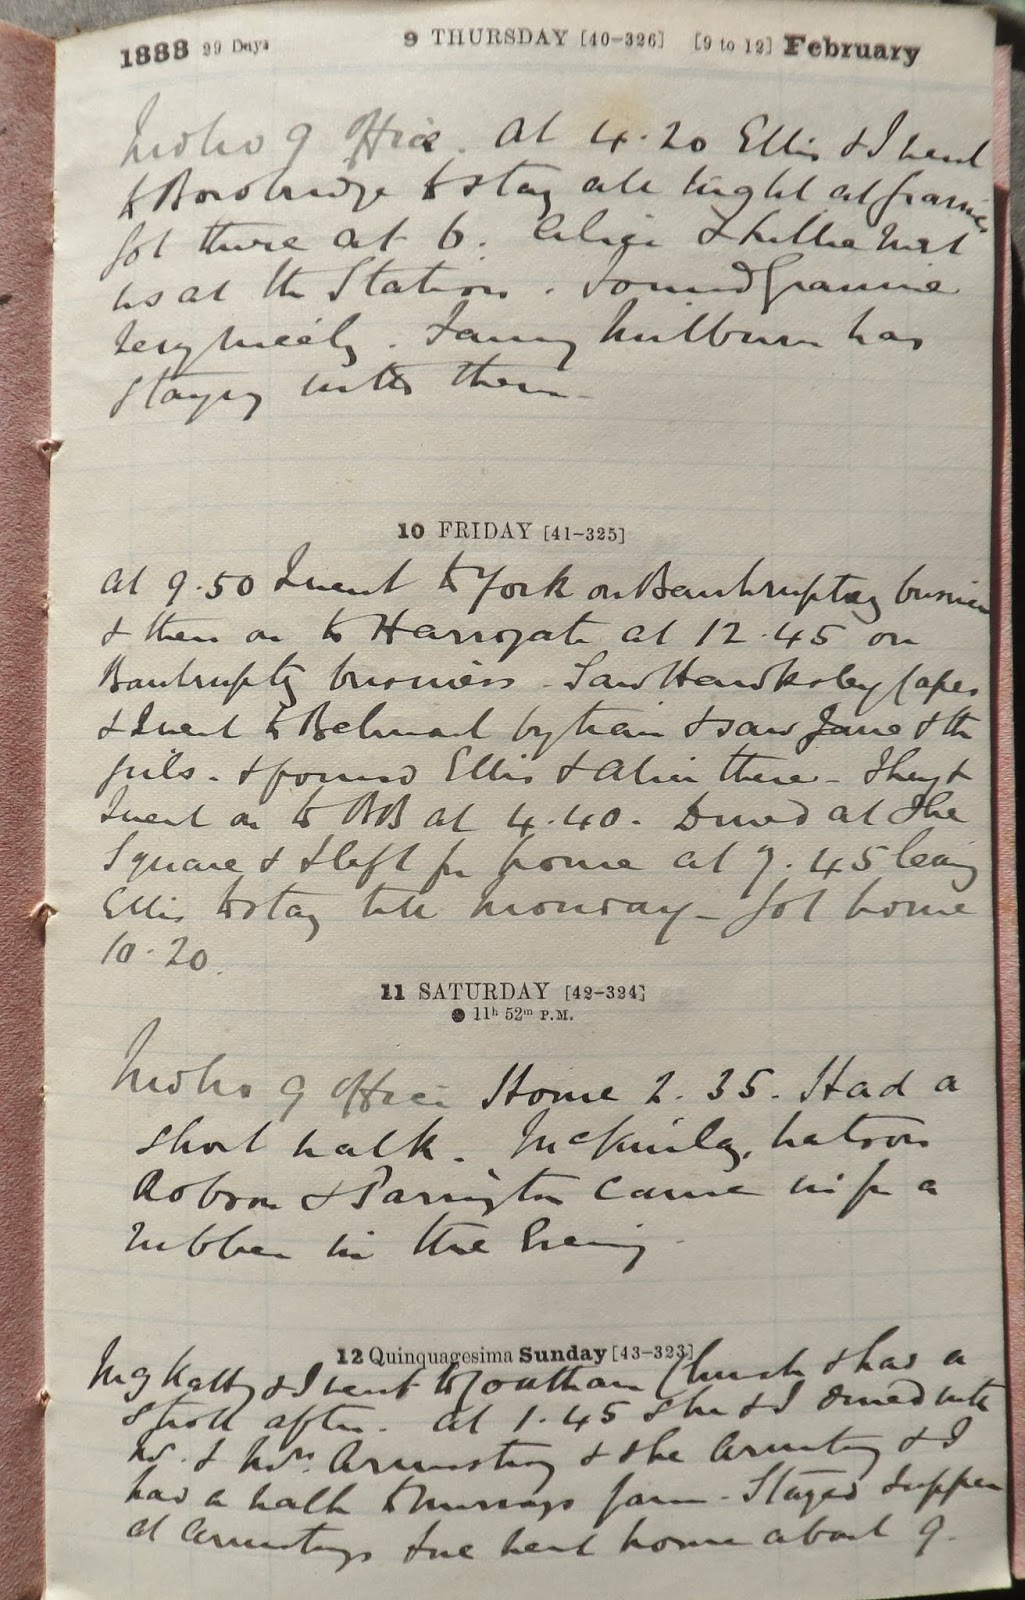 1888 29 Days 9 THURSDAY [40-326] [9 to 12] February
office. At 4.20 Ellis & I went
to Borobridge to stay all night at Grannies
Got there at 6. Alice & met
us at the Station. Found Grannie
very nicely. Fanny Milburn was
staying with them
10 FRIDAY [41-325]
At 9.50 I went to York on Bankruptcy business
& then on to Harrogate at 12.45 on
Bankruptcy business. Saw Hawksley Capes
& I went to Belmont by train & saw Jane & the
girls. & found Ellis & Alice there. They &
I went on to BB at 4.40. Dined at The
Square & I left for home at 7.45 leavg
Ellis to stay till Monday - Got home
10.20.
11 SATURDAY [42-324]
● 11h 52m P.M.
office Home 2.35. Had a
short walk. Watson
Robson & Parrington came in for a
rubber in the Eveng
12 Quinquagesima Sunday [43-323]
Katty & I went to Coatham Church & had a
stroll after. At 1.45 she & I dined with
Mr. & Mrs. Armstrong & she & I
had a walk to Murrays farm. Stayed supper
at & we went home about 9.